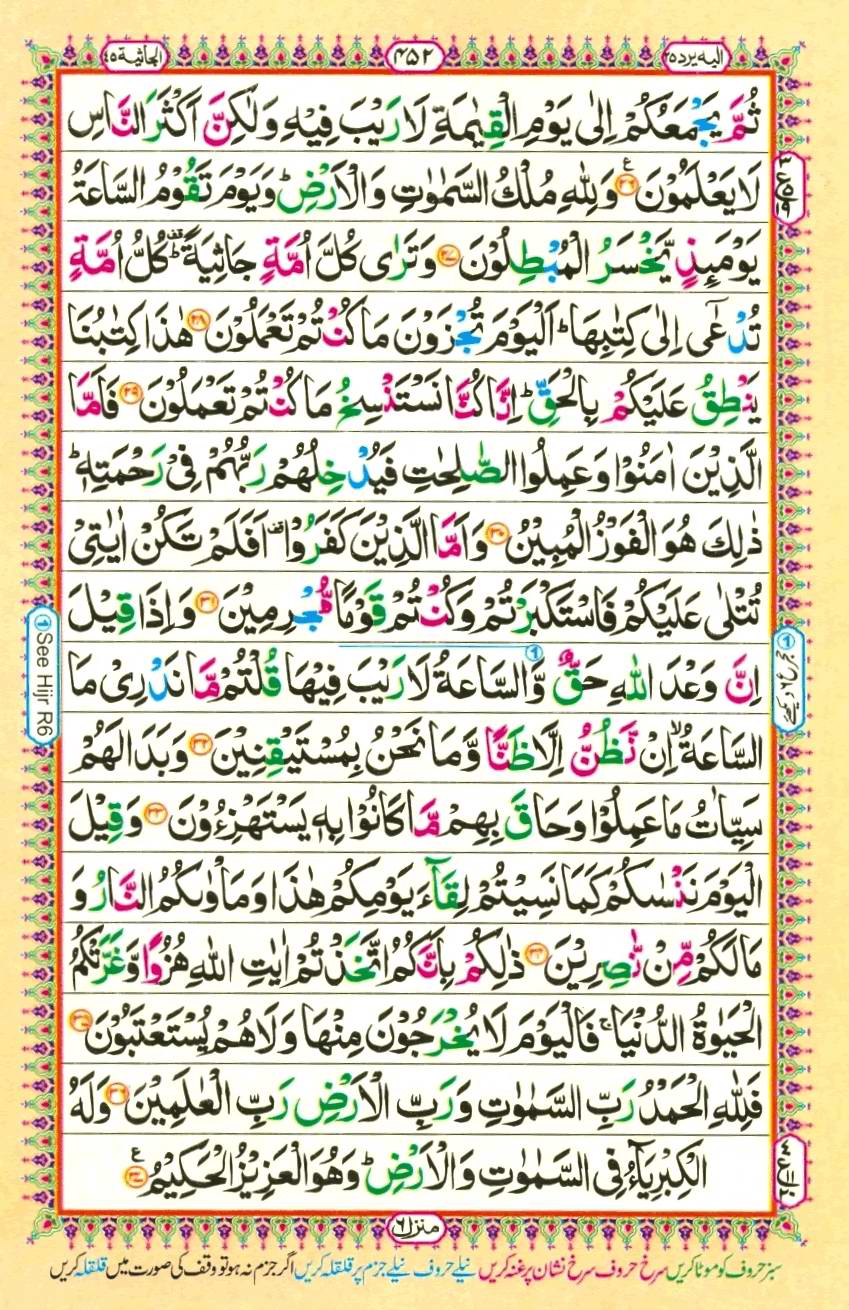 الیه یرد ۲۵
۴۵۲
الجاثیة ۴۵
ثُمَّ يَجْمَعُكُمْ اِلٰى يَوْمِ الْقِيٰمَةِ لَا رَيْبَ فِيْهِ وَلٰكِنَّ اَكْثَرَ النَّاسِ
لَا يَعْلَمُوْنَ ۲۶ ع وَلِلّٰهِ مُلْكُ السَّمٰوٰتِ وَالْاَرْضِ ؕ وَيَوْمَ تَقُوْمُ السَّاعَةُ
يَوْمَىِٕذٍ يَّخْسَرُ الْمُبْطِلُوْنَ ۲۷ وَتَرٰى كُلَّ اُمَّةٍ جَاثِيَةً ۫ؕ كُلُّ اُمَّةٍ
تُدْعٰۤى اِلٰى كِتٰبِهَا ؕ اَلْيَوْمَ تُجْزَوْنَ مَا كُنْتُمْ تَعْمَلُوْنَ ۲۸ هٰذَا كِتٰبُنَا
يَنْطِقُ عَلَيْكُمْ بِالْحَقِّ ؕ اِنَّا كُنَّا نَسْتَنْسِخُ مَا كُنْتُمْ تَعْمَلُوْنَ ۲۹ فَاَمَّا
الَّذِيْنَ اٰمَنُوْا وَعَمِلُوا الصّٰلِحٰتِ فَيُدْخِلُهُمْ رَبُّهُمْ فِيْ رَحْمَتِهٖ ؕ
ذٰلِكَ هُوَ الْفَوْزُ الْمُبِيْنُ ۳۰ وَاَمَّا الَّذِيْنَ كَفَرُوْا ۫ اَفَلَمْ تَكُنْ اٰيٰتِيْ
تُتْلٰى عَلَيْكُمْ فَاسْتَكْبَرْتُمْ وَكُنْتُمْ قَوْمًا مُّجْرِمِيْنَ ۳۱ وَاِذَا قِيْلَ
اِنَّ وَعْدَ اللّٰهِ حَقٌّ وَّالسَّاعَةُ لَا رَيْبَ فِيْهَا قُلْتُمْ مَّا نَدْرِيْ مَا
السَّاعَةُ ۙ اِنْ نَّظُنُّ اِلَّا ظَنًّا وَّمَا نَحْنُ بِمُسْتَيْقِنِيْنَ ۳۲ وَبَدَا لَهُمْ
سَيِّاٰتُ مَا عَمِلُوْا وَحَاقَ بِهِمْ مَّا كَانُوْا بِهٖ يَسْتَهْزِءُوْنَ ۳۳ وَقِيْلَ
الْيَوْمَ نَنْسٰىكُمْ كَمَا نَسِيْتُمْ لِقَآءَ يَوْمِكُمْ هٰذَا وَمَاْوٰىكُمُ النَّارُ وَ
مَا لَكُمْ مِّنْ نّٰصِرِيْنَ ۳۴ ذٰلِكُمْ بِاَنَّكُمُ اتَّخَذْتُمْ اٰيٰتِ اللّٰهِ هُزُوًا وَّغَرَّتْكُمُ
الْحَيٰوةُ الدُّنْيَا ۚ فَالْيَوْمَ لَا يُخْرَجُوْنَ مِنْهَا وَلَا هُمْ يُسْتَعْتَبُوْنَ ۳۵
فَلِلّٰهِ الْحَمْدُ رَبِّ السَّمٰوٰتِ وَرَبِّ الْاَرْضِ رَبِّ الْعٰلَمِيْنَ ۳۶ وَلَهُ
الْكِبْرِيَآءُ فِى السَّمٰوٰتِ وَالْاَرْضِ ؕ وَهُوَ الْعَزِيْزُ الْحَكِيْمُ ۳۷ ع
① See Hijr R6
منزل ۶
سبز حروف کو موٹا کریں سرخ حروف سرخ نشان پر غنہ کریں نیلے حروف نیلے جزم پر قلقلہ کریں اگر جزم نہ ہو تو وقف کی صورت میں قلقلہ کریں